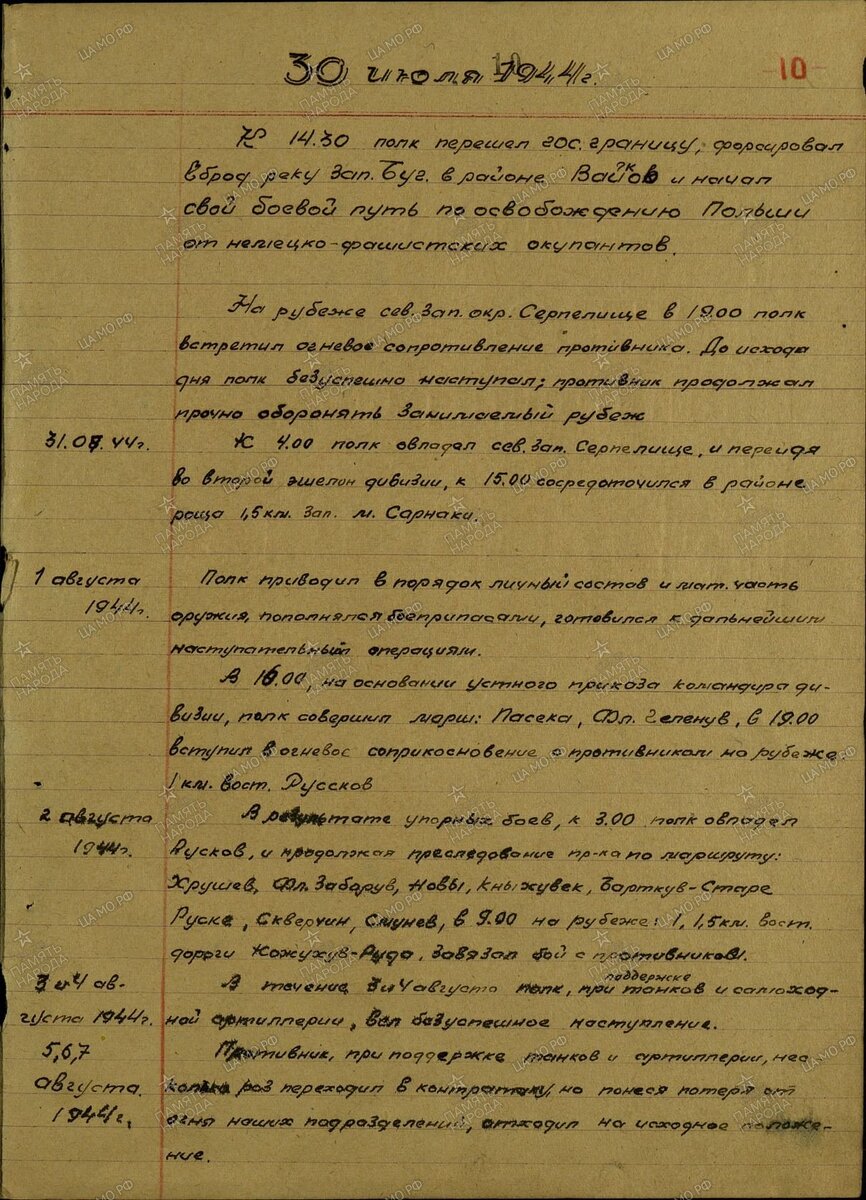 30 июля 1944 г.
10
К 14.30 полк перешел гос. границу, форсировал
вброд реку Зап. Буг. в районе и начал
свой боевой путь по освобождению Польши
от немецко-фашистских окупантов.
На рубеже сев. зап. окр. Серпелище в 19.00 полк
встретил огневое сопротивление противника. До исхода
дня полк безуспешно наступал; противник продолжал
прочно оборонять занимаемый рубеж
31.07.44г. К 4.00 полк овладел сев. зап. Серпелище, и перейдя
во второй эшелон дивизии, к 15.00 сосредоточился в районе
роща 1,5 км. зап. м. Сарнаки.
1 августа Полк приводил в порядок личный состав и мат. часть
1944г. оружия, пополнялся боеприпасами, готовился к дальнейшим
наступательным операциям.
В 16.00, на основании устного приказа командира ди-
визии, полк совершил марш: Пасека, Фл. Геленув, в 19.00
вступил в огневое соприкосновение с противником на рубеже
1 км. вост. Руссков
2 августа В результате упорных боев, к 3.00 полк овладел
1944г. Русков, и продолжая преследование пр-ка по маршруту:
Хрущев, Фл. Заборув, Новы, Кныжувек, Барткув-Старе
Руске, Скверчин, в 9.00 на рубеже: 1, 1,5 км. вост.
дороги Кожухув-Руда, завязал бой с противником.
3 и 4 ав- В течение 3 и 4 августа полк, при поддержке танков и самоход-
густа 1944г. ной артиллерии, вел безуспешное наступление.
5,6,7 Противник, при поддержке танков и артиллерии, нес
августа колько раз переходил в контратаку, но понеся потеря от
1944г. огня наших подразделений, отходил на исходное положе-
ние.